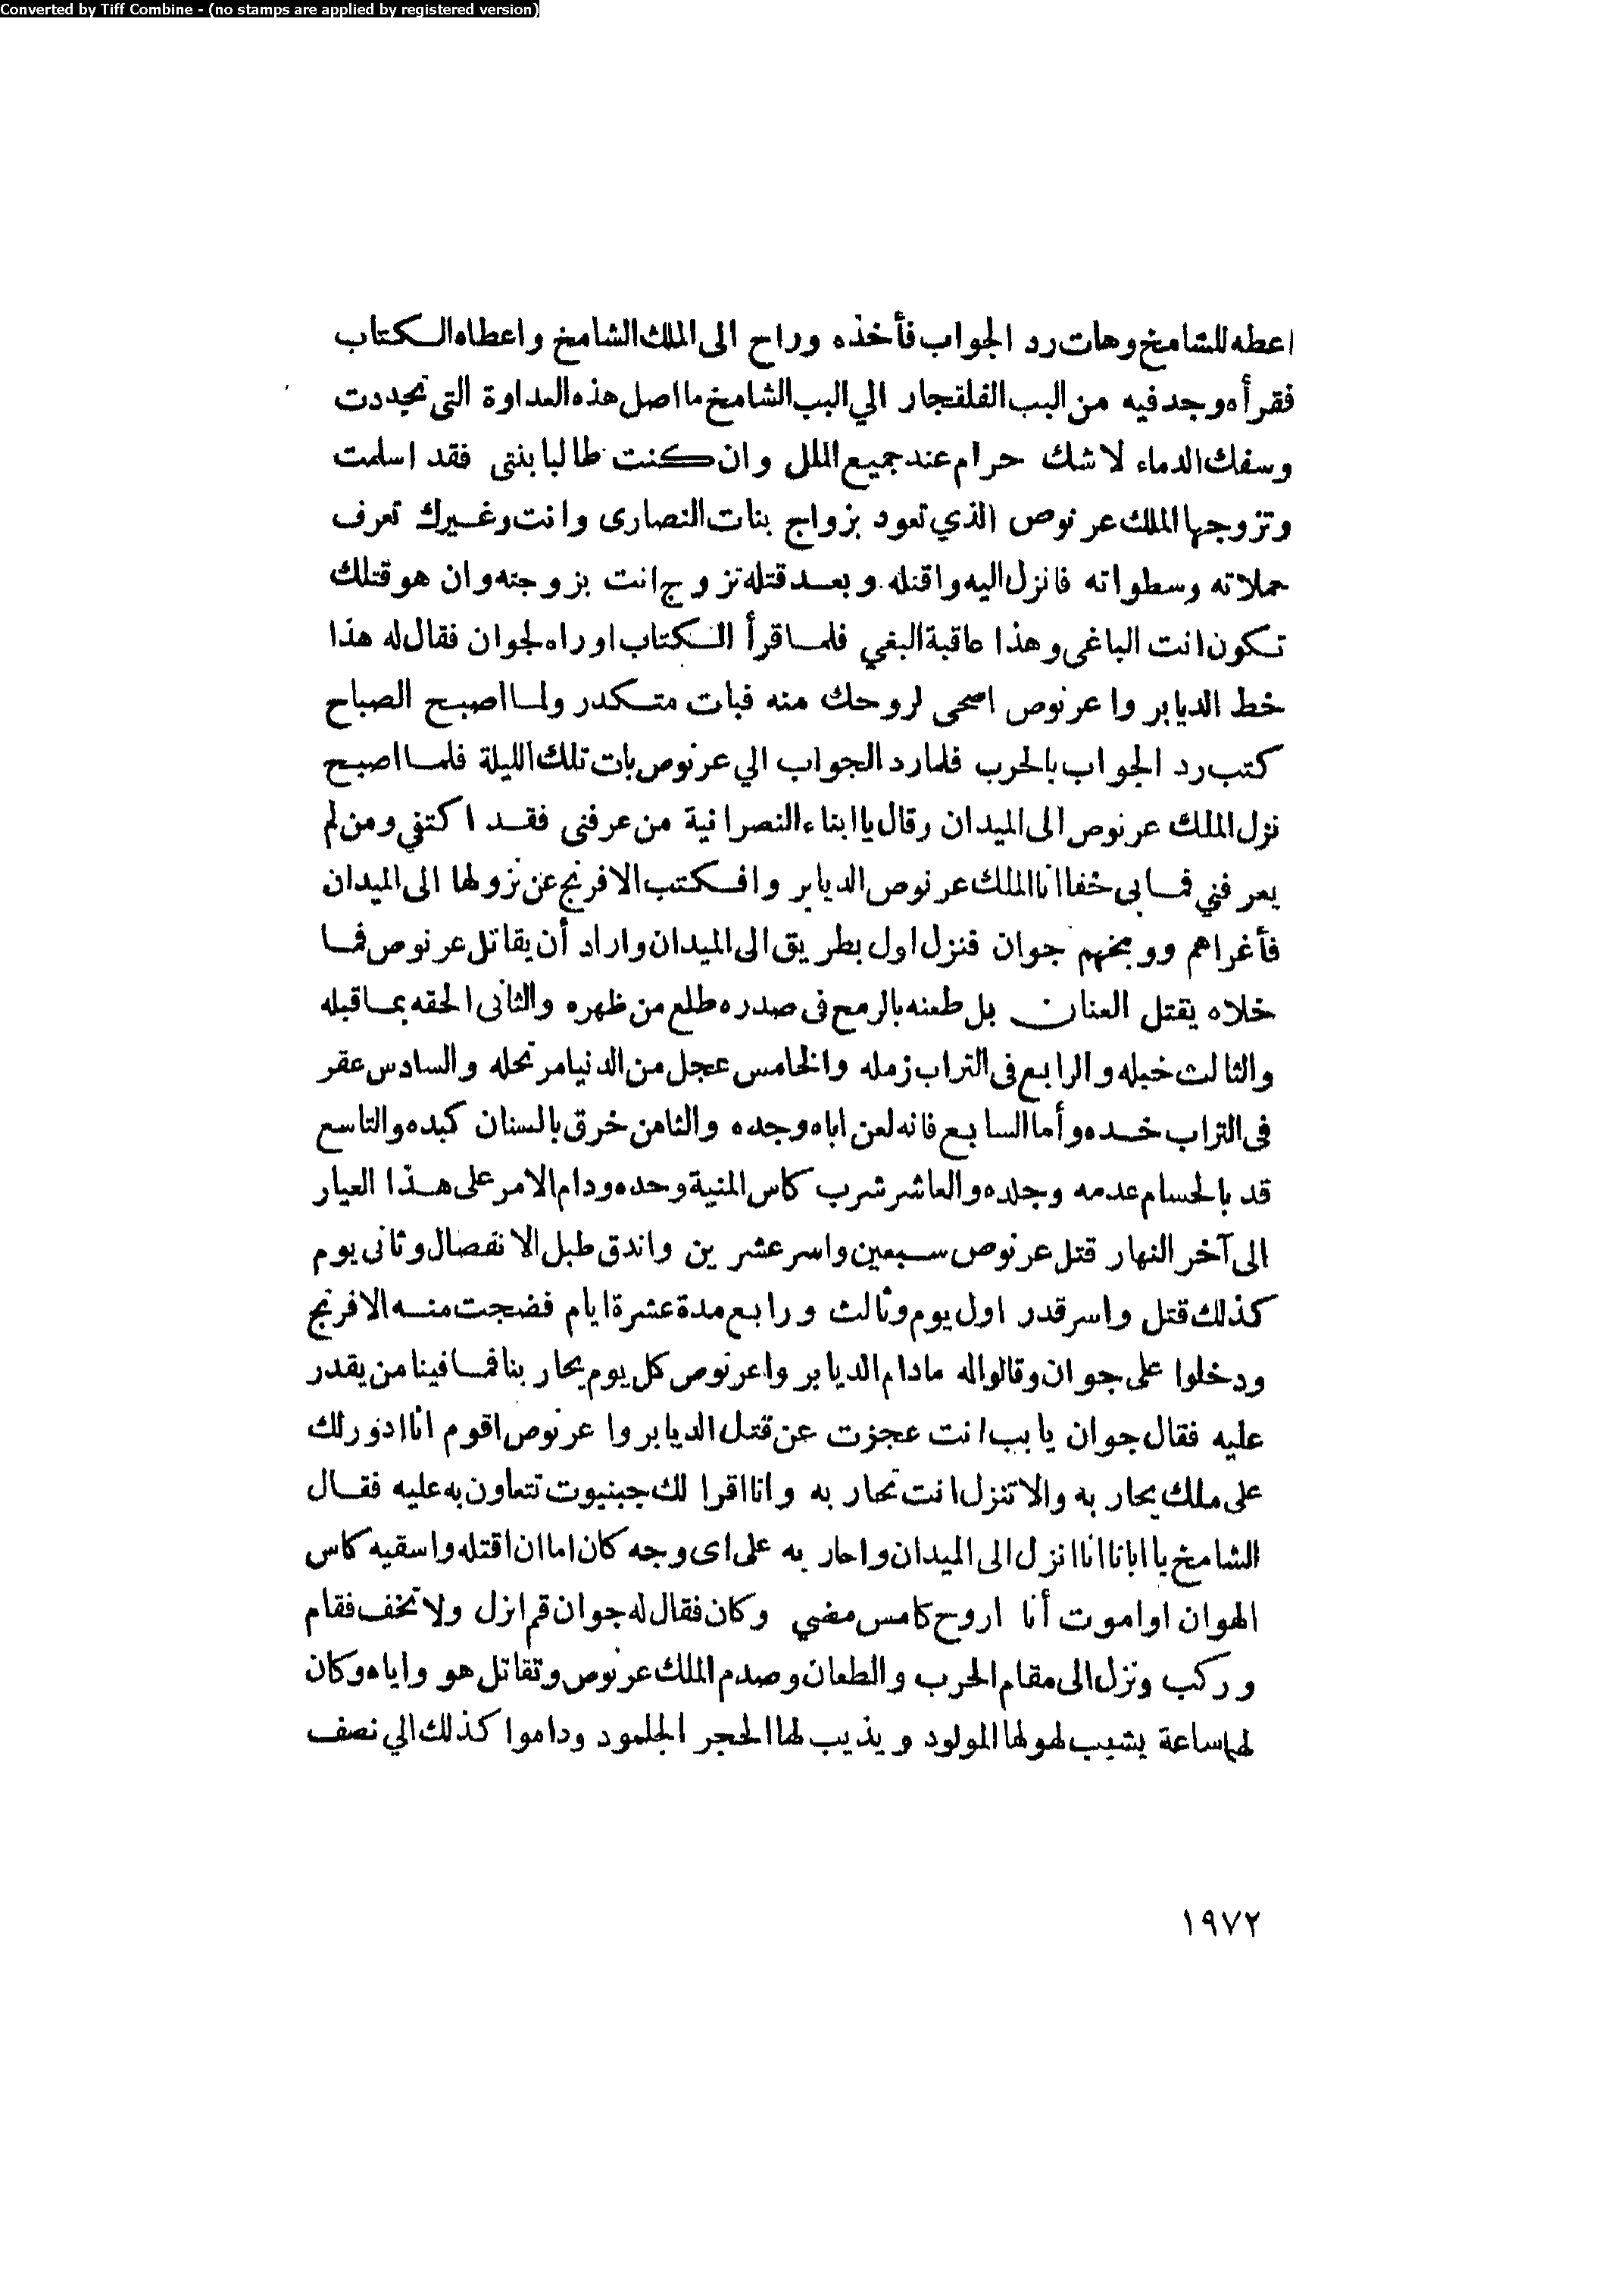 Converted by Tiff Combine - (no stamps are applied by registered version)
اعطه للشامخ وهات رد الجواب فأخذه وراح الى الملك الشامخ واعطاه الكتاب
فقرأه وجد فيه من البب الفلقجار الي البب الشامخ ما اصل هذه العداوة التى تجددت
وسفك الدماء لا شك حرام عند جميع الملل وان كنت طالبا بنتى فقد اسلمت
وتزوجها الملك عرنوص الذي تعود بزواج بنات النصارى وانت وغيرك تعرف
حملاته وسطواته فانزل اليه واقتله وبعد قتله تزوج انت بزوجته وان هو قتلك
تكون انت الباغى وهذا عاقبة البغي فلما قرأ الكتاب اوراه لجوان فقال له هذا
خط الديابر وا عرنوص اصحى لروحك منه فبات متكدر ولما اصبح الصباح
كتب رد الجواب بالحرب فلما رد الجواب الي عرنوص بات تلك الليلة فلما اصبح
نزل الملك عرنوص الى الميدان وقال يا ابناء النصرانية من عرفنى فقد اكتفي ومن لم
يعرفني فما بى خفا انا الملك عرنوص الديابر وافكتب الافرنج عن نزولها الى الميدان
فأغراهم ووبخهم جوان فنزل اول بطريق الى الميدان واراد أن يقاتل عرنوص فما
خلاه يقتل العنان بل طعنه بالرمح فى صدره طلع من ظهره والثانى الحقه بما قبله
والثالث خبله والرابع فى التراب زمله والخامس عجل من الدنيا مرتحله والسادس عقر
فى التراب خده وأما السابع فانه لعن اباه وجده والثامن خرق بالسنان كبده والتاسع
قد بالحسام عدمه وجلده والعاشر شرب كاس المنية وحده ودام الامر على هذا العيار
الى آخر النهار قتل عرنوص سبعين واسر عشرين واندق طبل الانفصال وثانى يوم
كذلك قتل واسر قدر اول يوم وثالث ورابع مدة عشرة ايام فضجت منه الافرنج
ودخلوا على جوان وقالوا له مادام الديابر وا عرنوص كل يوم يحاربنا فما فينا من يقدر
عليه فقال جوان يا بب انت عجزت عن قتل الديابر وا عرنوص اقوم انا ادور لك
على ملك يحاربه والا تنزل انت تحاربه وانا اقرا لك جبنيوت تتعاون به عليه فقال
الشامخ يا ابانا انا انزل الى الميدان واحاربه على اى وجه كان اما ان اقتله واسقيه كاس
الهوان او اموت أنا اروح كامس مضي وكان فقال له جوان قم انزل ولا تخف فقام
وركب ونزل الى مقام الحرب والطعان وصدم الملك عرنوص وتقاتل هو واياه وكان
لهما ساعة يشيب لهولها المولود ويذيب لها الحجر الجلمود وداموا كذلك الي نصف
١٩٧٢